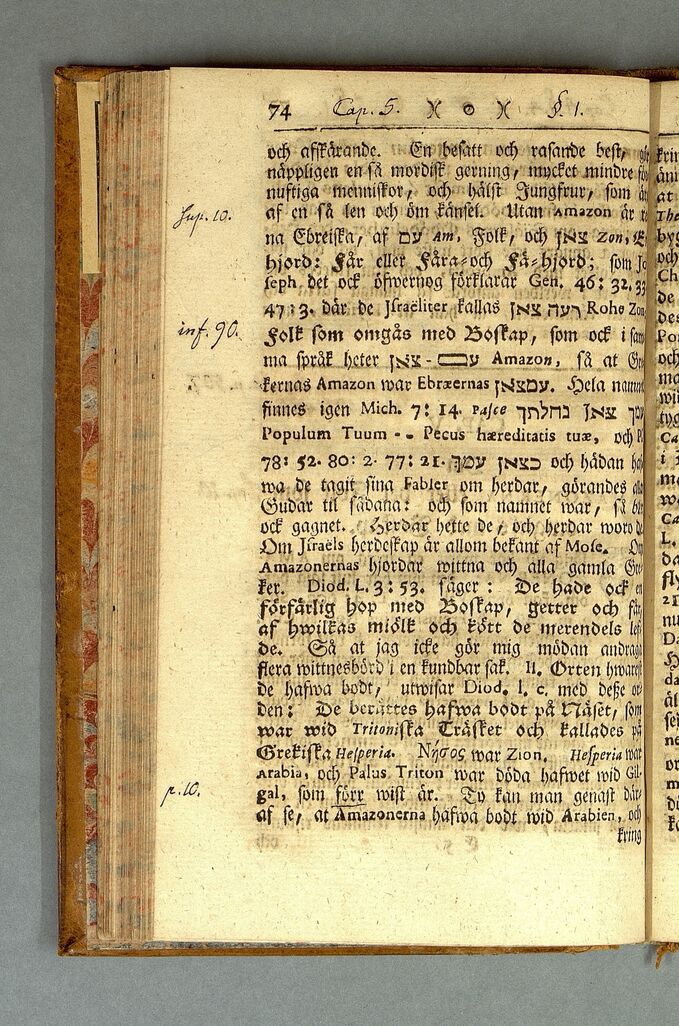 74 Cap. 5. )( o )( §. 1.
och afskärande. En besatt och rasande best,
näppligen en så mordisk gerning, mycket mindre
nuftiga menniskor, och hälst Jungfrur, som
af en så len och öm känsel. Utan Amazon är
Sup. 10.
na Ebreiska, af עם Am, Folk, och צאן Zon,
hjord: Får eller Fåra-och Fä-hjord; som Jo
seph det ock öfwernog förklarar Gen. 46: 32, 33
47: 3. där de Israeliter kallas רעה צאן Rohe Zon
inf. 90.
Folk som omgås med Boskap, som ock i sam
ma språk heter עם-צאן Amazon, så at Gre
kernas Amazon war Ebræernas עמצאן. Hela namnet
finnes igen Mich. 7: 14. Pasce עמך צאן נחלתך
Populum Tuum - - Pecus hæreditatis tuæ, och
78: 52. 80: 2. 77: 21. כצאן עמך och hådan
wa de tagit sina Fabler om herdar, görandes
Gudar til sådana: och som namnet war, så
ock gagnet. Herdar hette de, och herdar woro de
Om Israëls herdeskap är allom bekant af Mose. Om
Amazonernas hjordar wittna och alla gamla Gre
ker. Diod. L. 3: 53. säger: De hade ock en
förfärlig hop med Boskap, getter och får,
af hwilkas miölk och kött de merendels lef
de. Så at jag icke gör mig mödan andraga
flera wittnesbörd i en kundbar sak. II. Orten hwarest
de hafwa bodt, utwisar Diod. l. c. med deße or
den: De berättes hafwa bodt på Näset, som
war wid Tritoniska Träsket och kallades på
Grekiska Hesperia. Νῆσος war Zion. Hesperia war
Arabia, och Palus Triton war döda hafwet wid Gil-
p. 10.
gal, som förr wist är. Ty kan man genast där-
af se, at Amazonerna hafwa bodt wid Arabien, och
kring